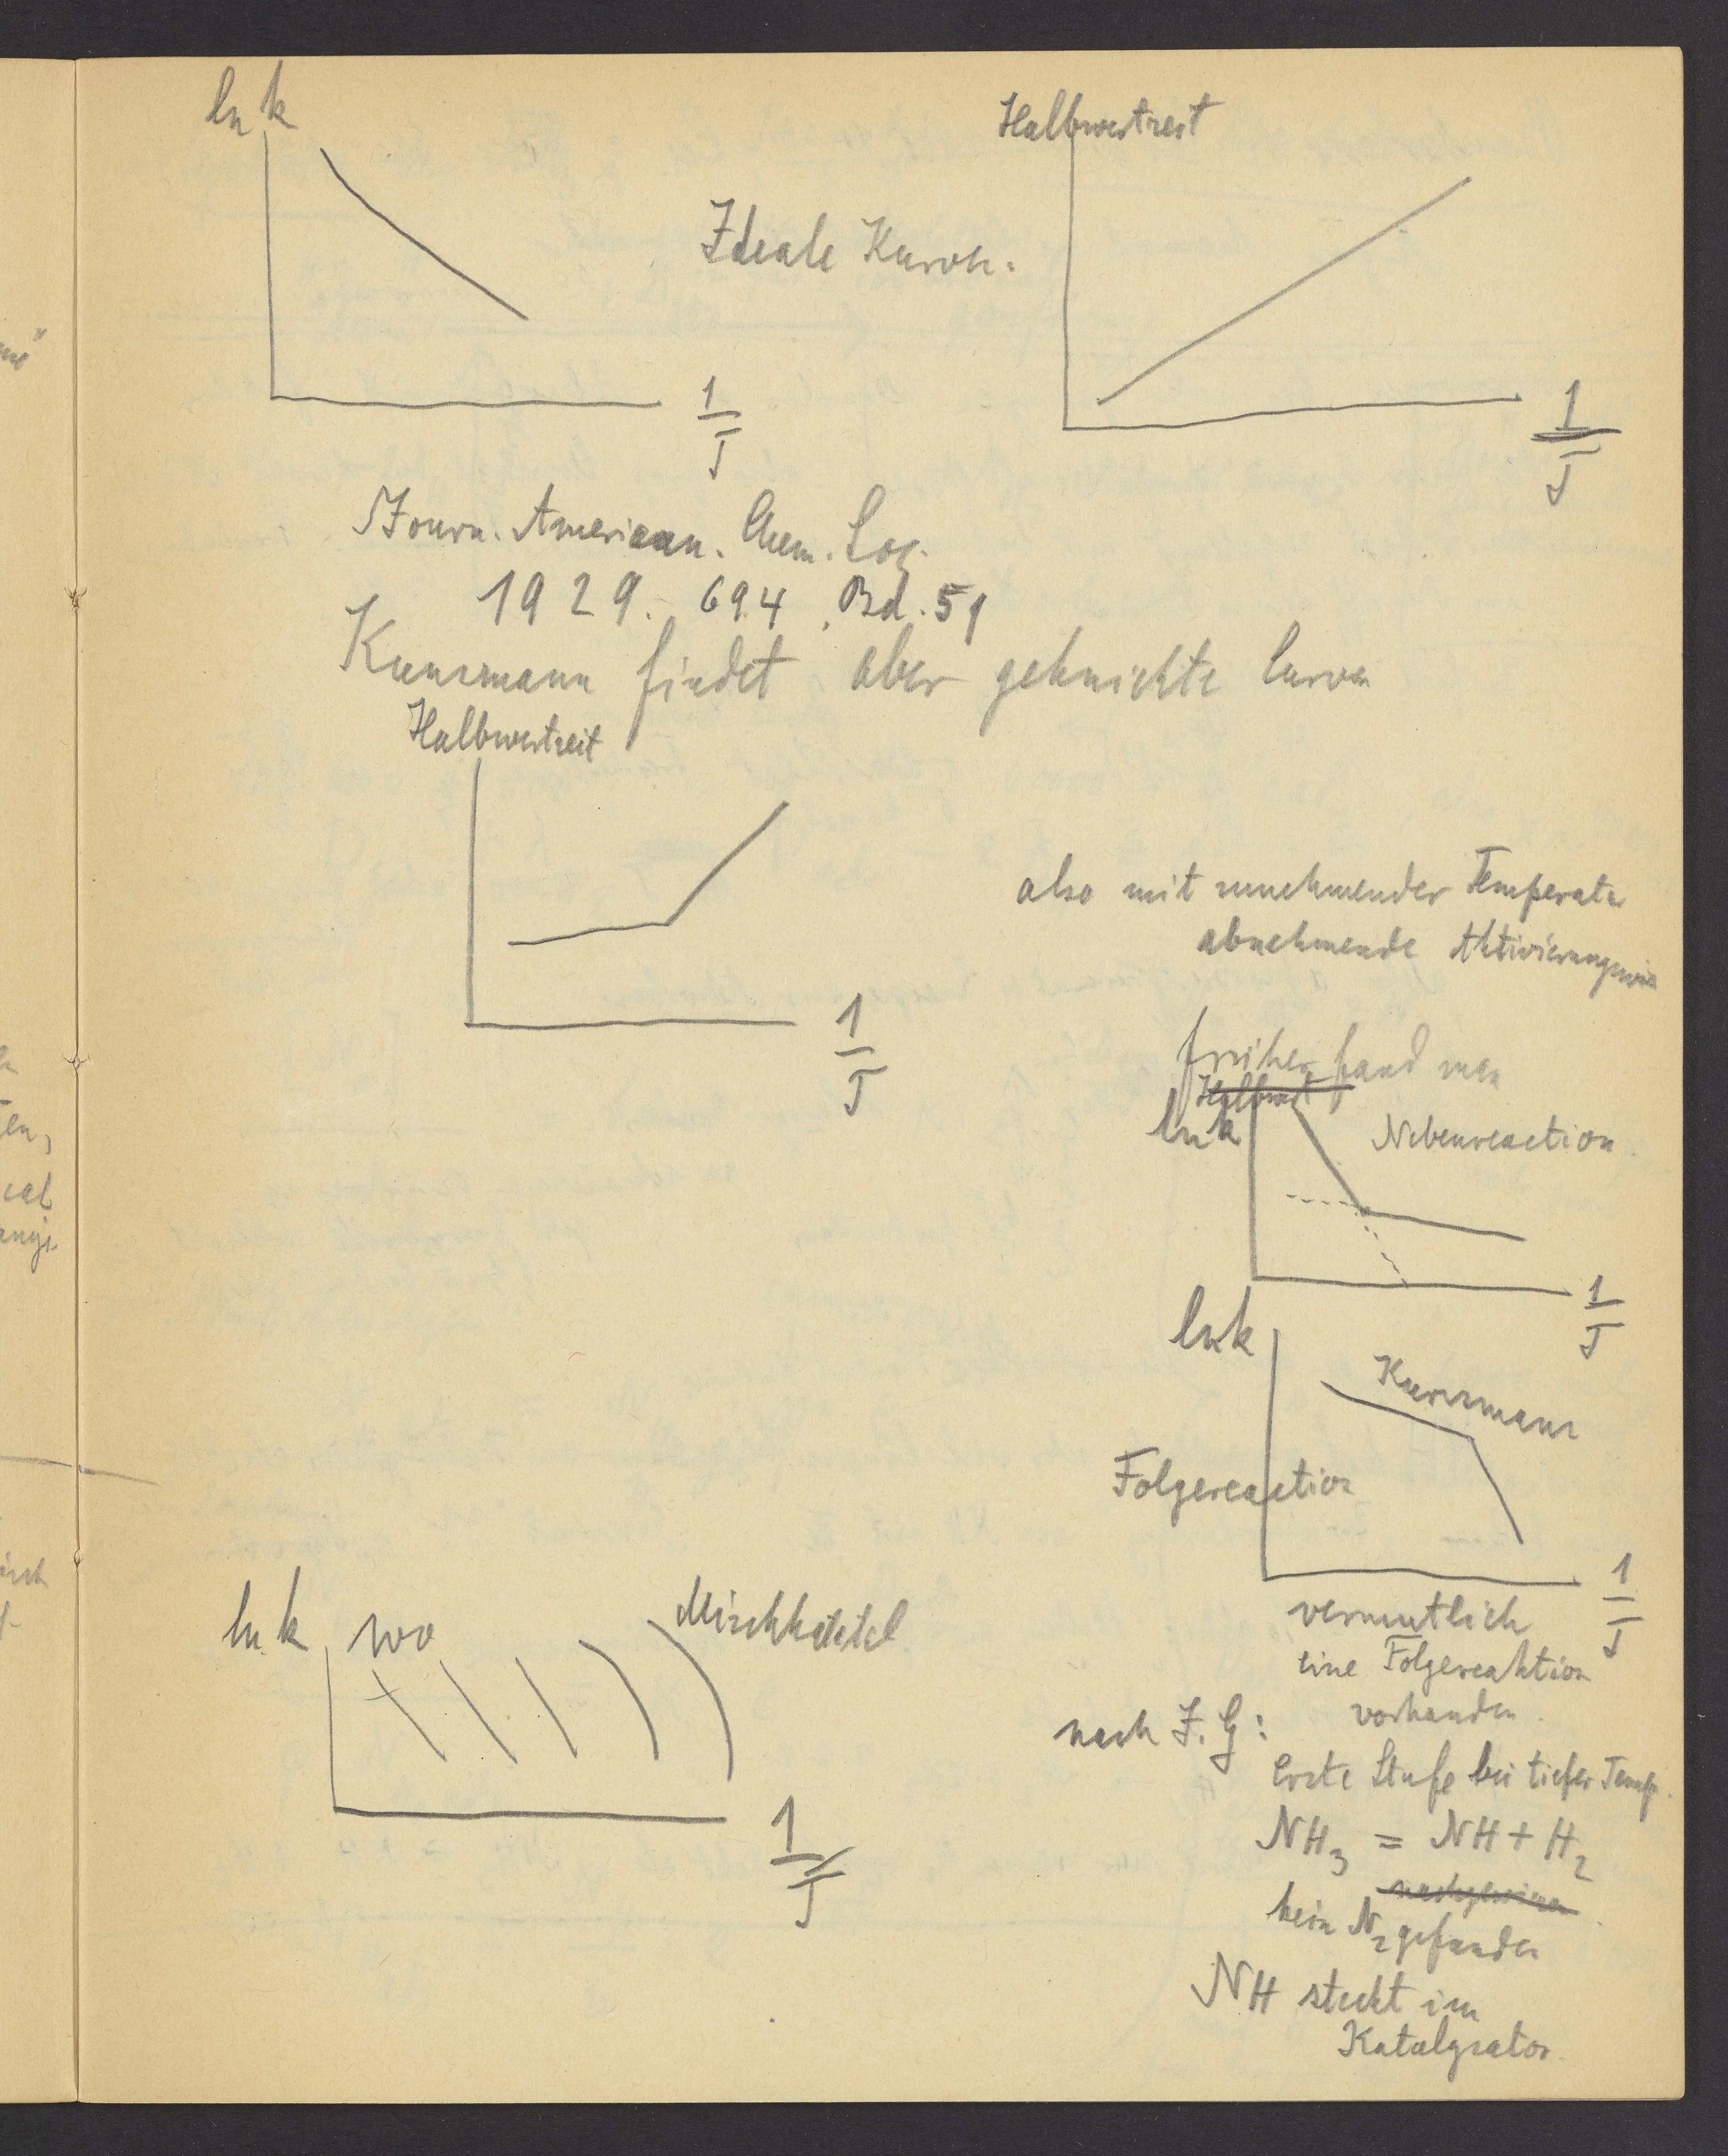 ln k
Halbwertzeit
Ideale Kurven.
1/T
1/T
Journ. American. Chem. Soc.
1929. 694, Bd. 51
Kunsmann findet aber geknickte Curven
Halbwertzeit
1/T
also mit zunehmender Temperatur
abnehmende Aktivierungswä
früher fand man
ln k
Nebenreaction.
1/T
ln k
Kunsmann
Folgereaction
1/T
vermutlich
eine Folgereaktion
vorhanden.
ln k
Wo
1/T
nach I. G:
erste Stufe bei tiefer Temp.
NH3 = NH + H2
kein N2 gefunden
NH steckt im
Katalysator.